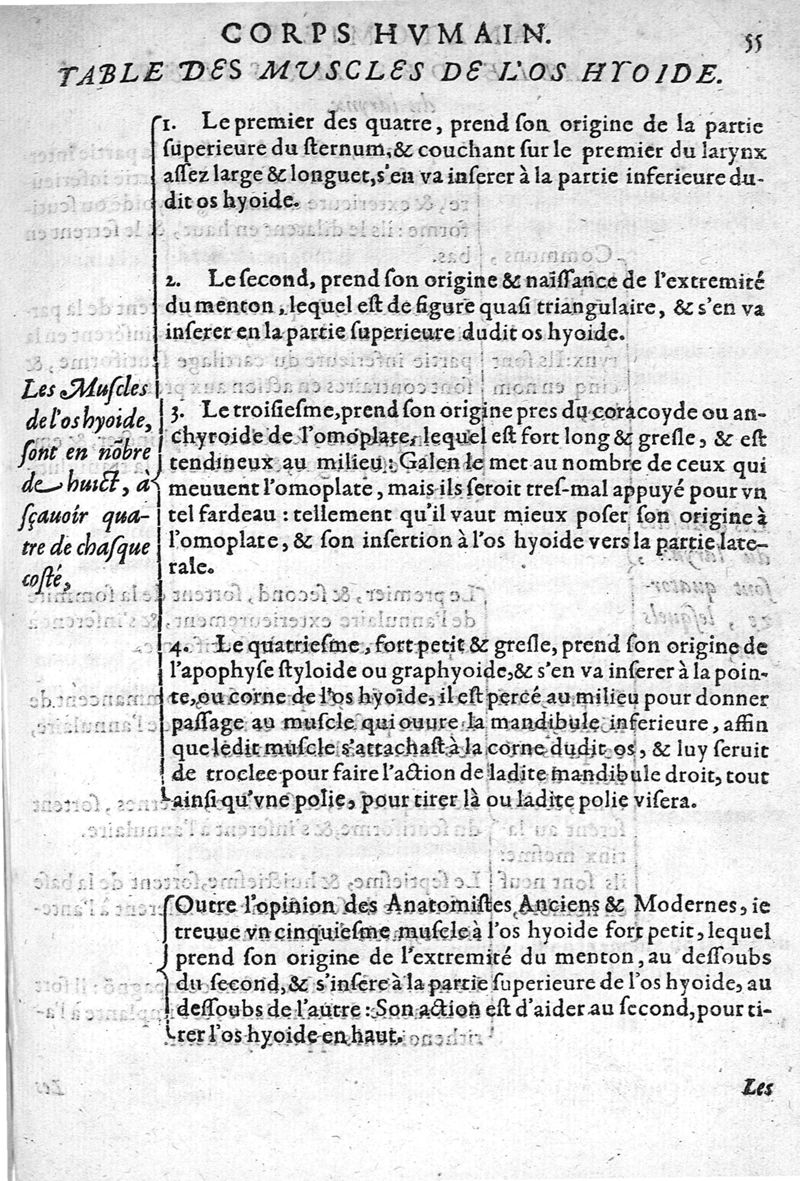 CORPS HVMAIN.
55
TABLE DES MUSCLES DE L'OS HYOIDE.
1. Le premier des quatre, prend ſon origine de la partie
ſuperieure du ſternum, & couchant ſur le premier du larynx
aſſez large & longuet, s'en va inſerer à la partie inferieure du-
dit os hyoide.
2. Le ſecond, prend ſon origine & naiſſance de l'extremité
du menton, lequel eſt de figure quaſi triangulaire, & s'en va
inſerer en la partie ſuperieure dudit os hyoide.
Les Muſcles
de l'os hyoide,
ſont en nõbre
de huict, à
ſçauoir qua-
tre de chaſque
coſté,
3. Le troiſieſme, prend ſon origine pres du coracoyde ou an-
chyroide de l'omoplate, lequel eſt fort long & greſle, & eſt
tendineux au milieu: Galen le met au nombre de ceux qui
meuuent l'omoplate, mais ils ſeroit treſ-mal appuyé pour vn
tel fardeau: tellement qu'il vaut mieux poſer ſon origine à
l'omoplate, & ſon inſertion à l'os hyoide vers la partie late-
rale.
4. Le quatrieſme, fort petit & greſle, prend ſon origine de
l'apophyſe ſtyloide ou graphyoide, & s'en va inſerer à la poin-
te, ou corne de l'os hyoide, il eſt percé au milieu pour donner
paſſage au muſcle qui ouure la mandibule inferieure, affin
que ledit muſcle s'attachaſt à la corne dudit os, & luy ſeruit
de troclee pour faire l'action de ladite mandibule droit, tout
ainſi qu'vne polie, pour tirer là ou ladite polie viſera.
Outre l'opinion des Anatomiſtes Anciens & Modernes, ie
treuue vn cinquieſme muſcle à l'os hyoide fort petit, lequel
prend ſon origine de l'extremité du menton, au deſſoubs
du ſecond, & s'inſere à la partie ſuperieure de l'os hyoide, au
deſſoubs de l'autre: Son action eſt d'aider au ſecond, pour ti-
rer l'os hyoide en haut.
Les